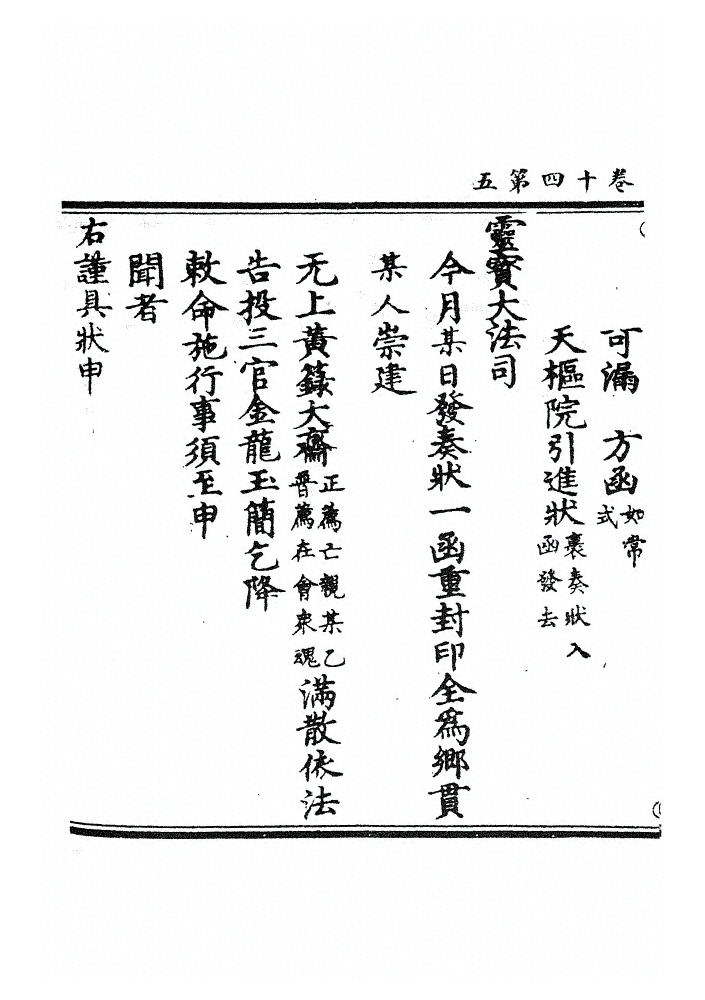 卷十四第五
可漏　方函如常式
天樞院引進狀裹奏狀入函發去
靈寳大法司
今月某日發奏狀一函重封印全爲鄉貫
某人崇建
无上黄籙大齋正薦亡親某乙普薦在會衆魂滿散依法
告投三官金龍玉簡乞降
敕命施行事須至申
聞者
右謹具狀申